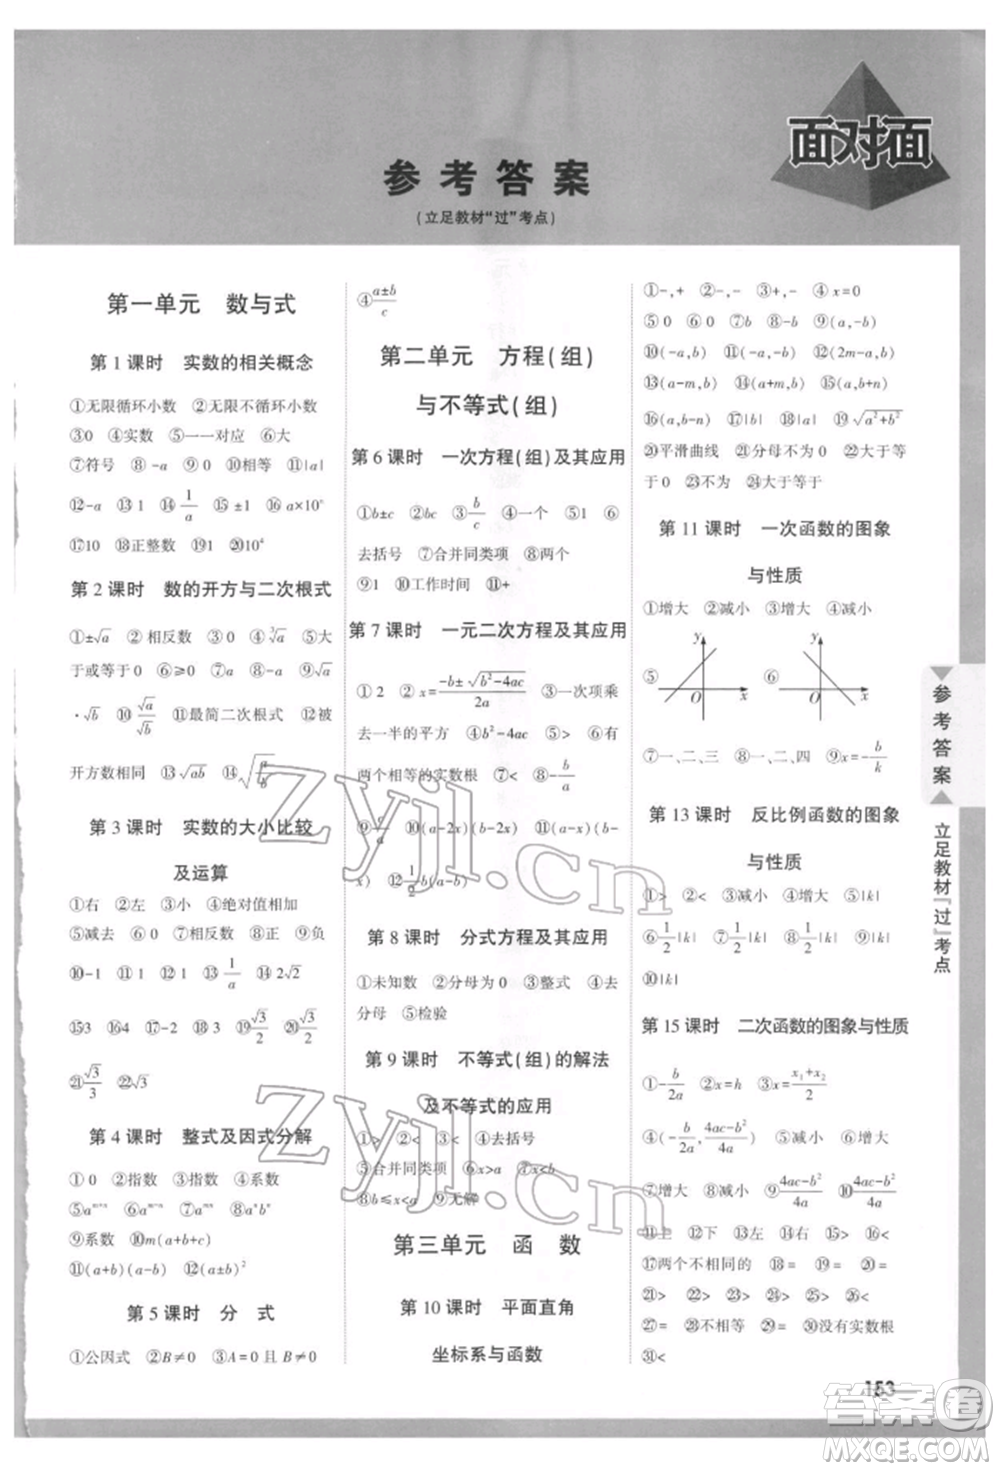 面对面
参考答案
(立足教材“过”考点)
第一单元 数与式
第 1 课时 实数的相关概念
①无限循环小数 ②无限不循环小数
③0 ④实数 ⑤一一对应 ⑥大
⑦符号 ⑧-a ⑨0 ⑩相等 ⑪|a|
⑫-a ⑬1 ⑭1/a ⑮±1 ⑯a×10ⁿ
⑰10 ⑱正整数 ⑲1 ⑳10⁴
第 2 课时 数的开方与二次根式
①±√a ②相反数 ③0 ④∛a ⑤大
于或等于0 ⑥≥0 ⑦a ⑧-a ⑨√a
·√b ⑩√a/√b ⑪最简二次根式 ⑫被
开方数相同 ⑬√ab ⑭√(a/b)
第 3 课时 实数的大小比较
及运算
①右 ②左 ③小 ④绝对值相加
⑤减去 ⑥相反数 ⑦0 ⑧正 ⑨负
⑩-1 ⑪1 ⑫1 ⑬1/a ⑭2√2
⑮3 ⑯4 ⑰-2 ⑱9 ⑲√3/2 ⑳√3/2
㉑√3/3 ㉒√3
第 4 课时 整式及因式分解
①0 ②指数 ③指数 ④系数
⑤aᵐ⁺ⁿ ⑥aᵐ⁻ⁿ ⑦aᵐⁿ ⑧aⁿbⁿ
⑨系数 ⑩m(a+b+c)
⑪(a+b)(a-b) ⑫(a±b)²
第 5 课时 分 式
①公因式 ②B≠0 ③A=0且B≠0
④(a±b)/c
第二单元 方程(组)
与不等式(组)
第 6 课时 一次方程(组)及其应用
①b±c ②bc ③b/c ④一个 ⑤1 ⑥
去括号 ⑦合并同类项 ⑧两个
⑨1 ⑩工作时间 ⑪+
第 7 课时 一元二次方程及其应用
①2 ②x=(-b±√(b²-4ac))/2a ③一次项乘
去一半的平方 ④b²-4ac ⑤> ⑥有
两个相等的实数根 ⑦< ⑧-b/a
⑨c/a ⑩(a-2x)(b-2x) ⑪(a-x)(b-
x) ⑫1/2b(a-b)
第 8 课时 分式方程及其应用
①未知数 ②分母为0 ③整式 ④去
分母 ⑤检验
第 9 课时 不等式(组)的解法
及不等式的应用
①> ②< ③< ④去括号
⑤合并同类项 ⑥x>a ⑦x<b
⑧b≤x<a ⑨无解
第三单元 函 数
第 10 课时 平面直角
坐标系与函数
①-,+ ②-,- ③+,- ④x=0
⑤0 ⑥0 ⑦b ⑧-b ⑨(a,-b)
⑩(-a,b) ⑪(-a,-b) ⑫(2m-a,b)
⑬(a-m,b) ⑭(a+m,b) ⑮(a,b+n)
⑯(a,b-n) ⑰|b| ⑱|a| ⑲√(a²+b²)
⑳平滑曲线 ㉑分母不为0 ㉒大于等
于0 ㉓大于等于
第 11 课时 一次函数的图象
与性质
①增大 ②减小 ③增大 ④减小
⑤ y O x ⑥ y O x
⑦一、二、三 ⑧一、二、四 ⑨x=-b/k
第 13 课时 反比例函数的图象
与性质
①> ②< ③减小 ④增大 ⑤|k|
⑥1/2|k| ⑦1/2 ⑧1/2 ⑨|k|
⑩|k|
第 15 课时 二次函数的图象与性质
①-b/2a ②x=h ③x=(x₁+x₂)/2
④(-b/2a,(4ac-b²)/4a) ⑤减小 ⑥增大
⑦增大 ⑧减小 ⑨(4ac-b²)/4a ⑩(4ac-b²)/4a
⑪上 ⑫下 ⑬y ⑭左 ⑮右 ⑯原点
⑰两个不相同的 ⑱= ⑲< ⑳=
㉑> ㉒> ㉓< ㉔< ㉕> ㉖<
㉗= ㉘> ㉙不相等 ㉚没有实数根
㉛<
参考答案
立足教材“过”考点
153
zyjl.cn
zyjl.cn
答案圈
MXQE.COM